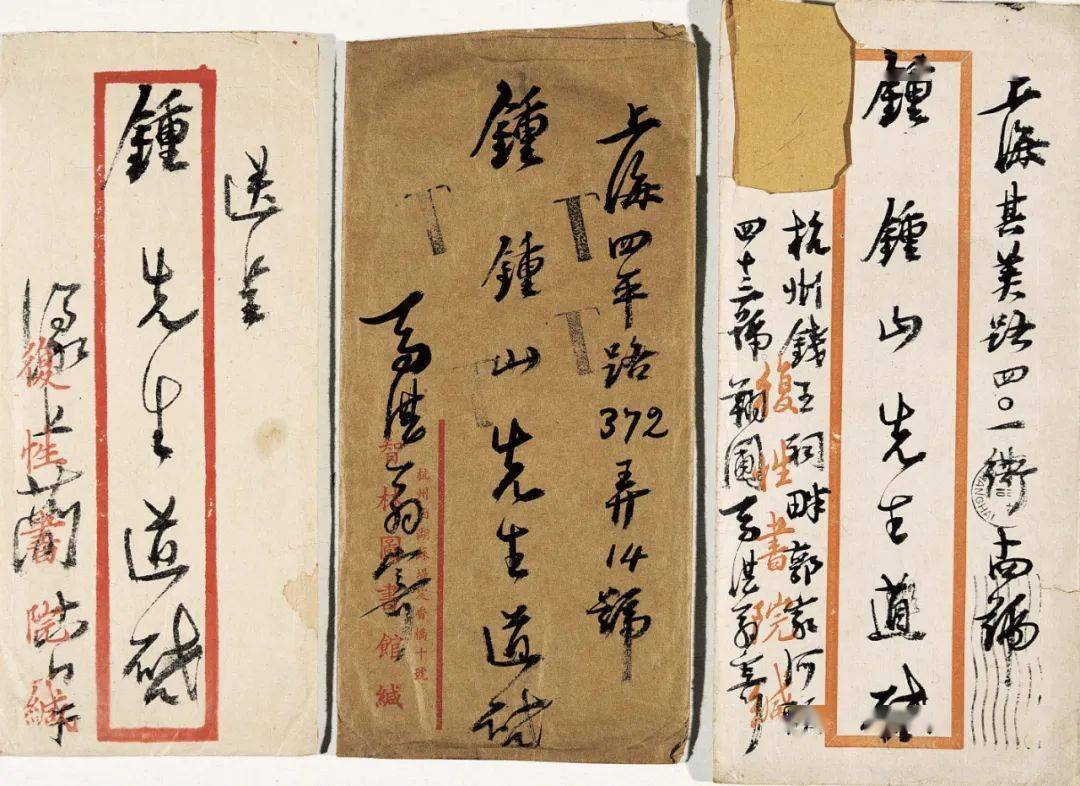 上海其美路四〇一衖號
鍾鍾山先生道啟
杭州錢王祠畔郭家河頭
四十三號馬湛翁寄
復性書院緘
SHANGHAI
上海四平路372弄14號
鍾鍾山先生道啟
馬湛翁寄
杭州西湖蘇堤定香橋十號
智林圖書館緘
T
T
T
T
送呈
鍾先生道啟
濠上
復性書院緘